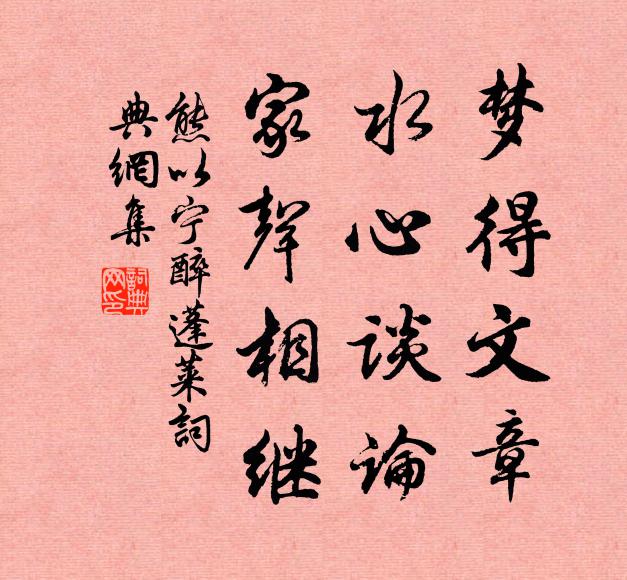 梦得文章
水心谈論
家聲相继
熊以宁醉蓬莱詞
典網集
詞典网印